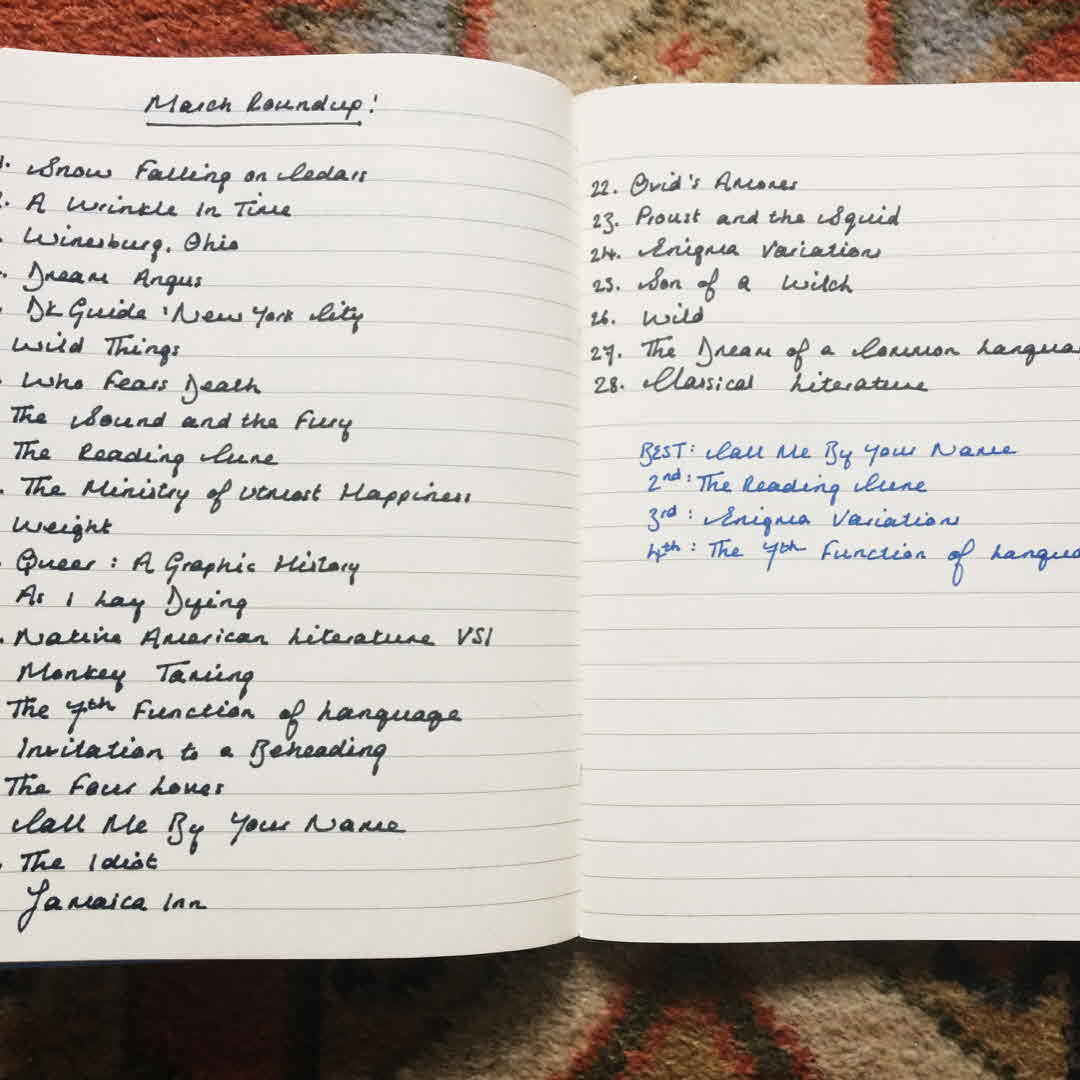 March Roundup!
1. Snow Falling on Cedars
2. A Wrinkle In Time
Winesburg, Ohio
Dream Angus
DK Guide: New York City
Wild Things
Who Fears Death
The Sound and the Fury
The Reading Cure
The Ministry of Utmost Happiness
Weight
Queer: A Graphic History
As I Lay Dying
Native American Literature VSI
Monkey Taming
The 7th Function of Language
Invitation to a Beheading
The Four Loves
Call Me By Your Name
The Idiot
Jamaica Inn
22. Ovid's Amores
23. Proust and the Squid
24. Enigma Variations
25. Son of a Witch
26. Wild
27. The Dream of a Common Langua
28. Classical Literature
BEST: Call Me By Your Name
2nd: The Reading Cure
3rd: Enigma Variations
4th: The 7th Function of Langua